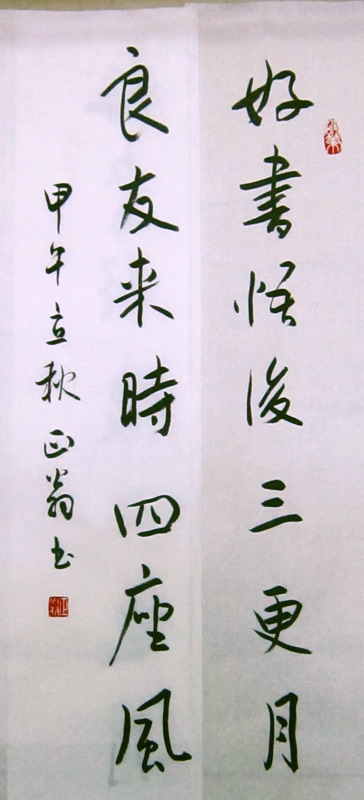 好書悟後三更月
良友来時四座風
甲午立秋正翁书